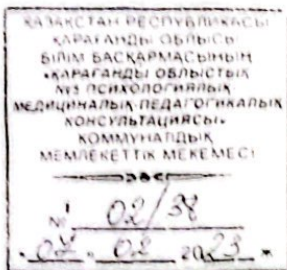 ҚАЗАҚСТАН РЕСПУБЛИКАСЫ
ҚАРАҒАНДЫ ОБЛЫСЫ
БІЛІМ БАСҚАРМАСЫНЫҢ
«ҚАРАҒАНДЫ ОБЛЫСТЫҚ
№3 ПСИХОЛОГИЯЛЫҚ
МЕДИЦИНАЛЫҚ-ПЕДАГОГИКАЛЫҚ
КОНСУЛЬТАЦИЯСЫ»
КОММУНАЛДЫҚ
МЕМЛЕКЕТТІК МЕКЕМЕСІ
№ 02/38
«07» 02 2023 ж